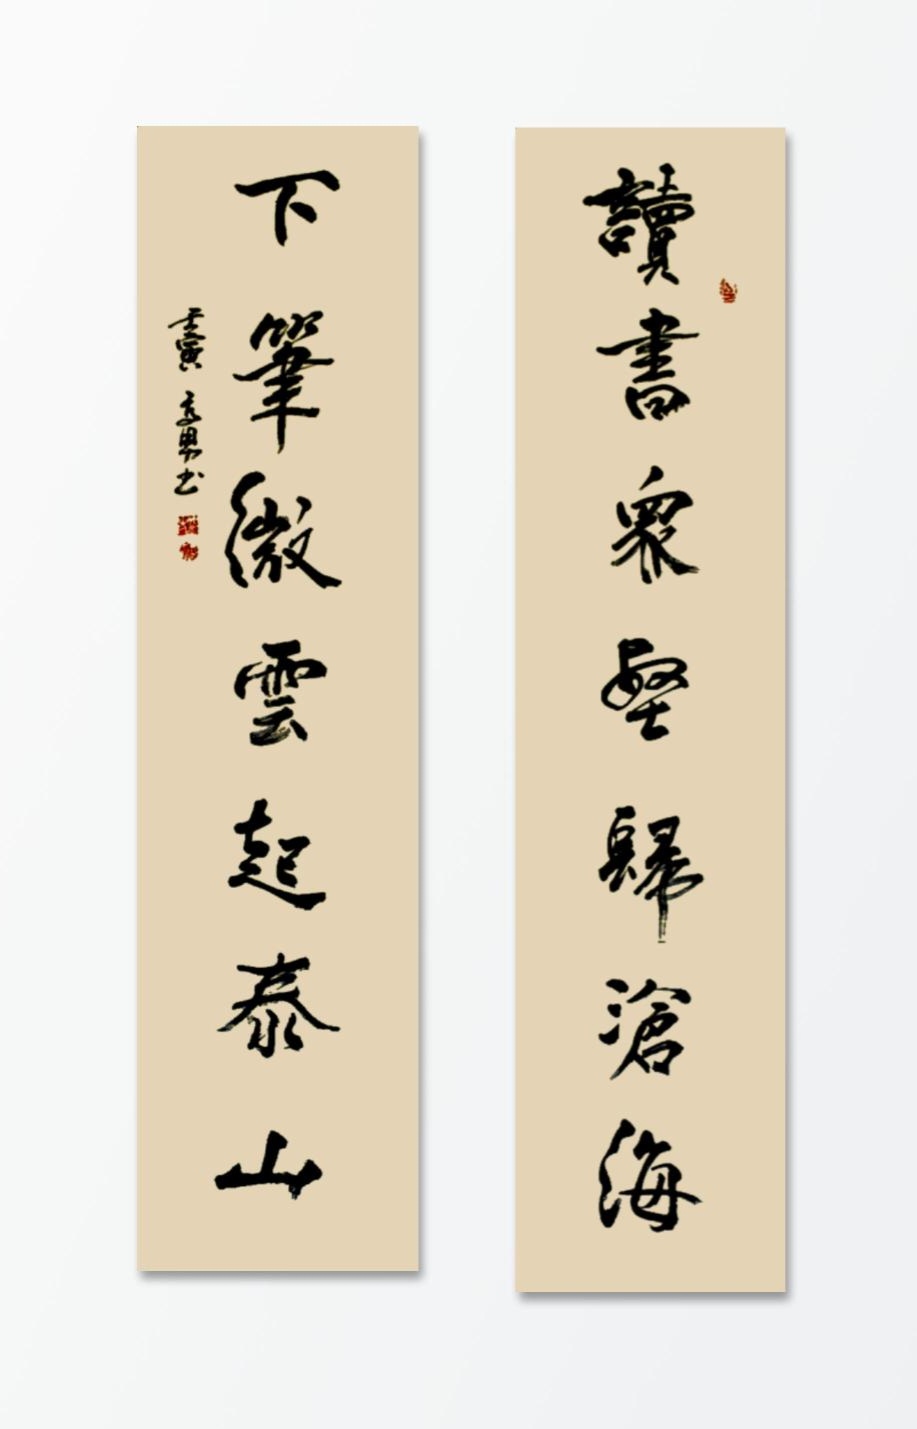 讀書衆壑歸滄海
下筆微雲起泰山
壬寅
書